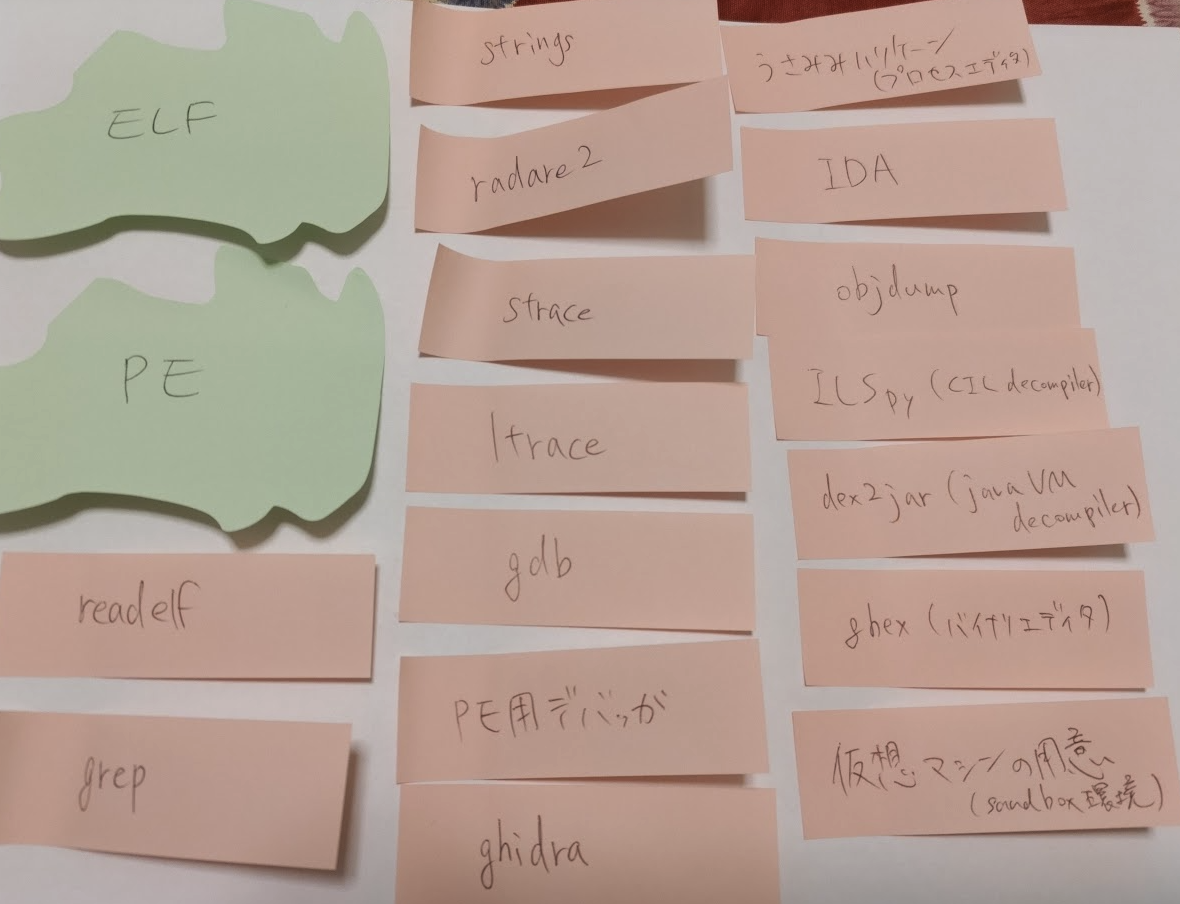 ELF
PE
readelf
grep
strings
radare2
strace
ltrace
gdb
PE用デバッガ
ghidra
うさみみハリケーン
(プロセスエディタ)
IDA
objdump
ILSpy (CIL decompiler)
dex2jar (java VM
decompiler)
ghex (バイナリエディタ)
仮想マシンの用意
(sandbox環境)